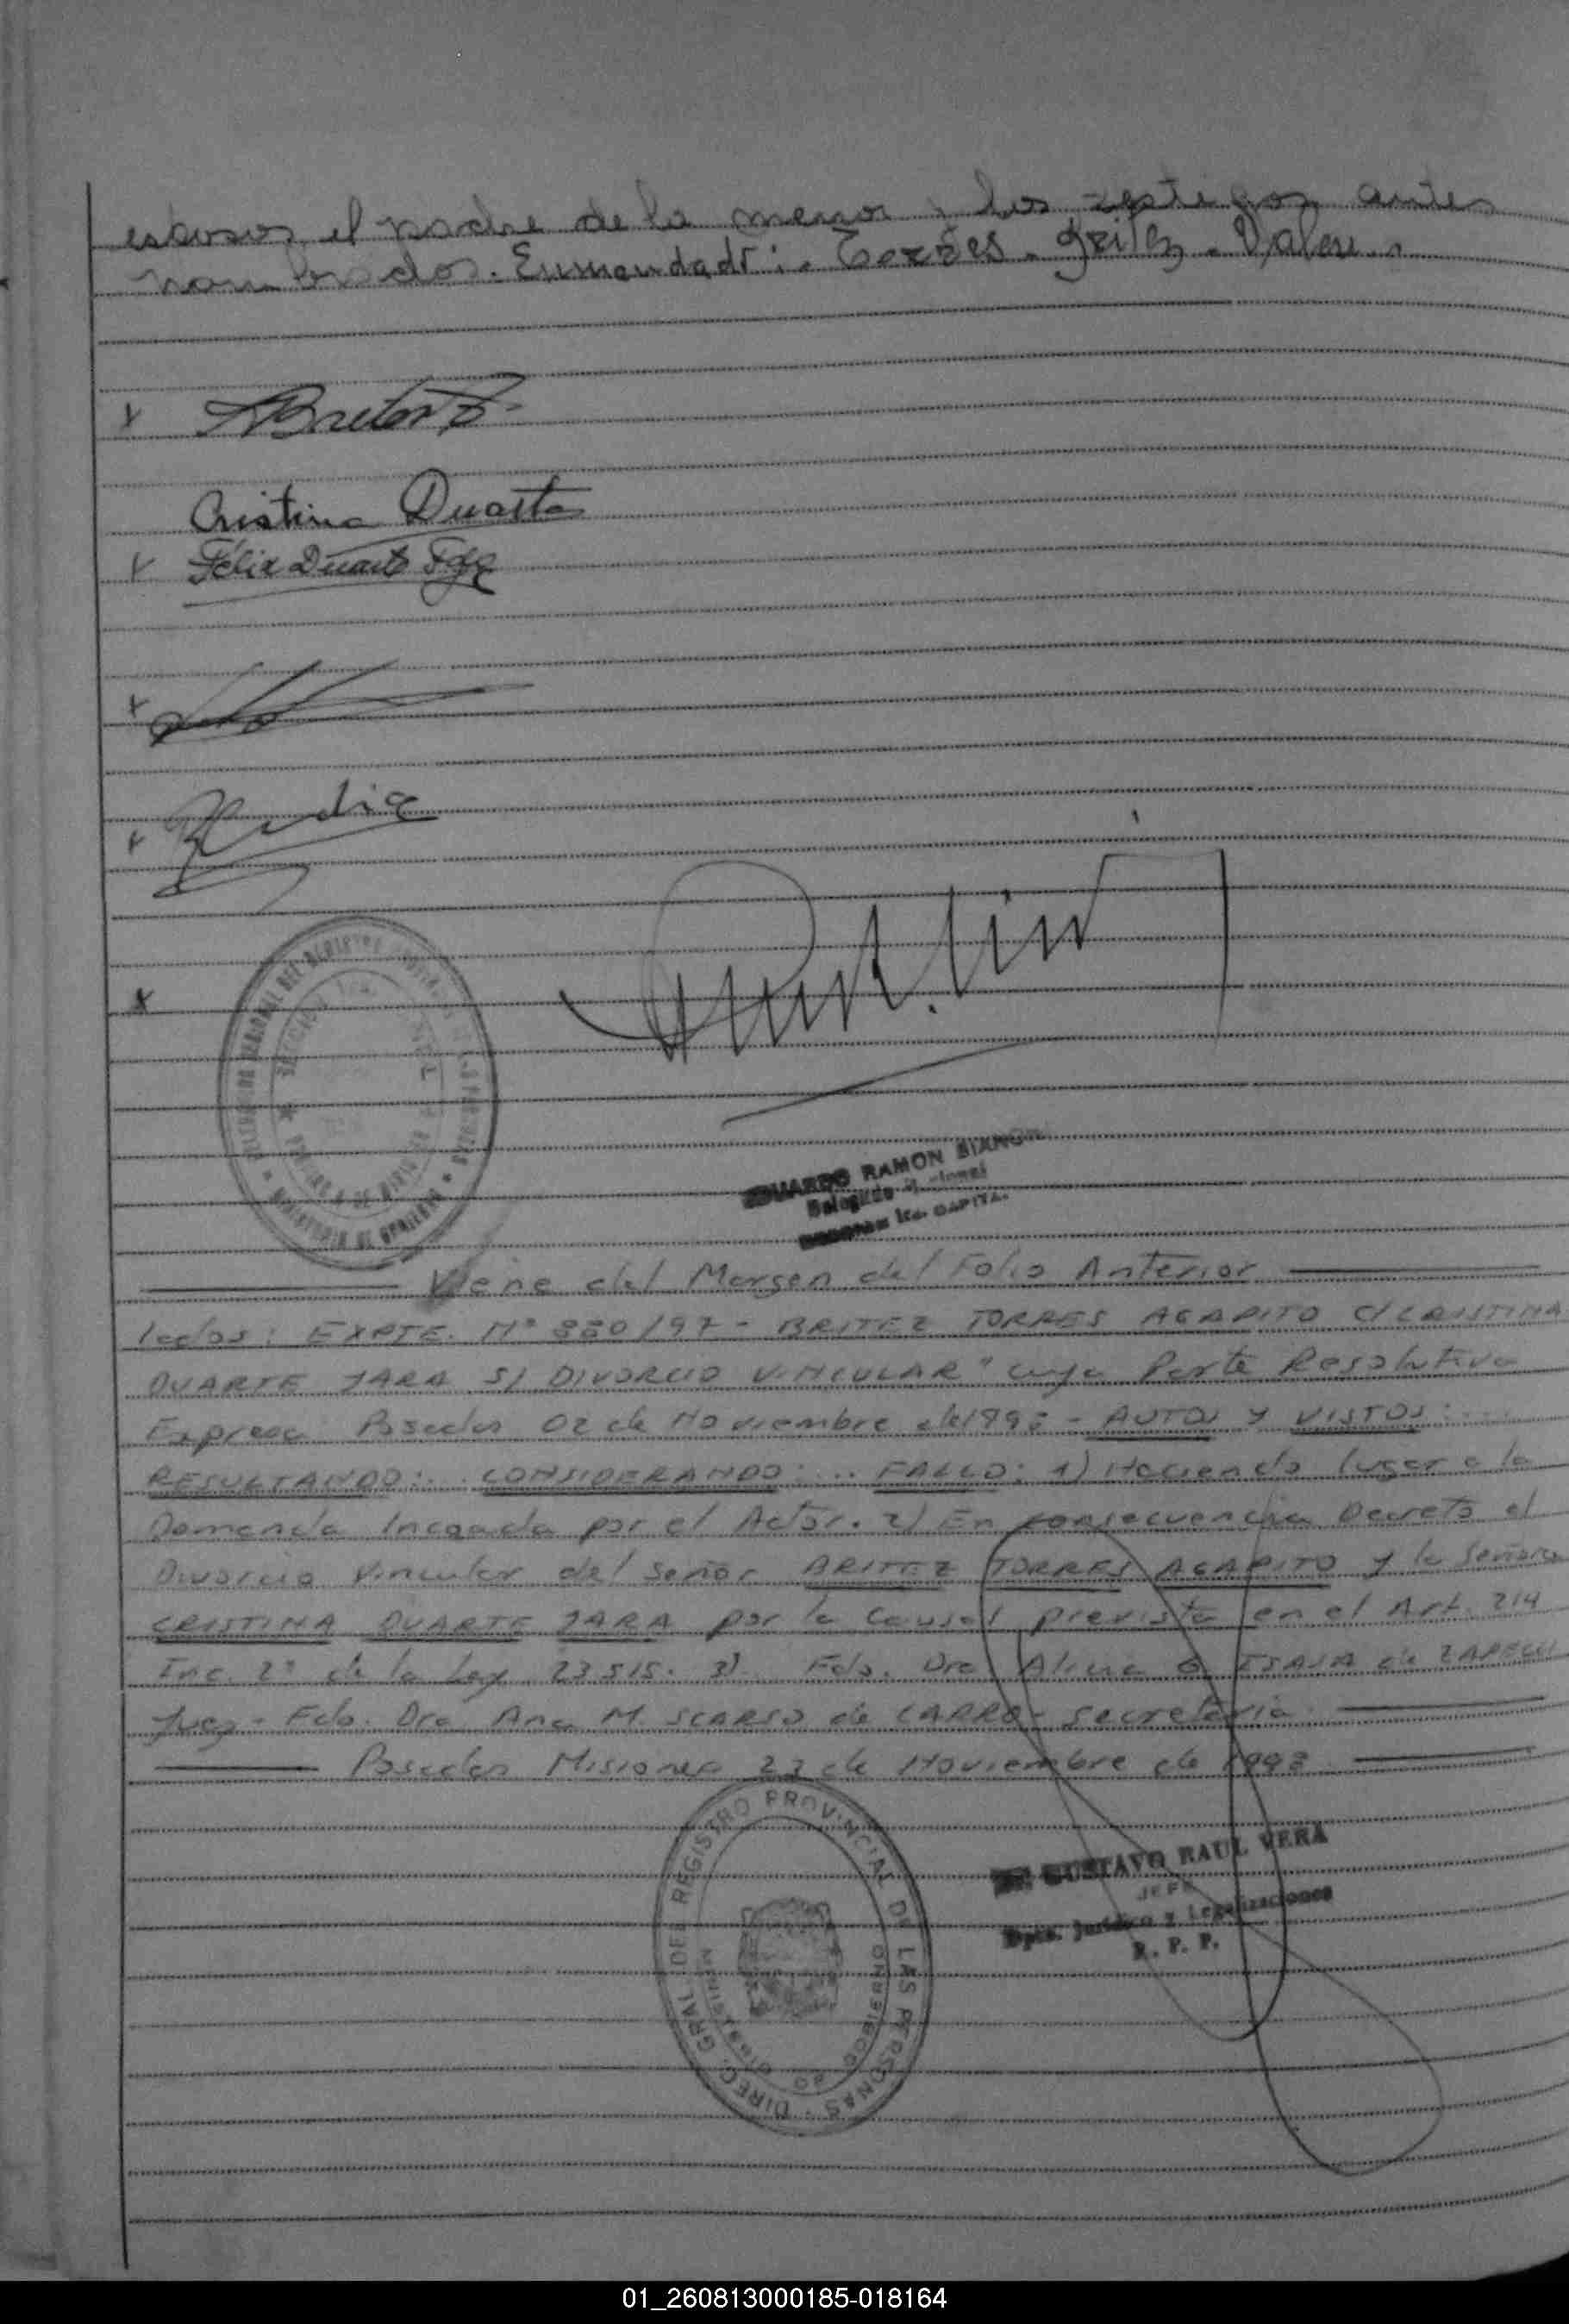 esposos, el padre de la menor y los testigos antes
nombrados. Enmendado: Torres. Britez. Valen.
Cristina Duarte
Félix Duarte
EDUARDO RAMON BIANCHI
Delegado
CAPITAL
Viene del Margen del Folio Anterior
lados: EXPTE. Nº 880/97 - BRITEZ TORRES AGAPITO C/ CRISTINA
DUARTE JARA S/ DIVORCIO VINCULAR" cuya Parte Resolutiva
Expresa Posadas 02 de Noviembre de 1998 - AUTOS Y VISTOS: ....
RESULTANDO: .. CONSIDERANDO: ... FALLO: 1) Haciendo lugar a la
Demanda Incoada por el Actor. 2) En consecuencia Decreto el
Divorcio Vincular del Señor BRITEZ TORRES AGAPITO y la Señora
CRISTINA DUARTE JARA por la Causal prevista en el Art. 214
Inc. 2º de la Ley 23.515. 3) Fdo. Dra Alicia de
Juez - Fdo. Dra Ana M. SCARSO de CARRO - Secretaria
Posadas Misiones 23 de Noviembre de 1998
DIREC. GRAL. DEL REGISTRO PROVINCIAL DE LAS PERSONAS
MINISTERIO DE GOBIERNO
GUSTAVO RAUL VERA
JEFE
Dpto. Jurídico y Legalizaciones
R. P. P.
01_260813000185-018164